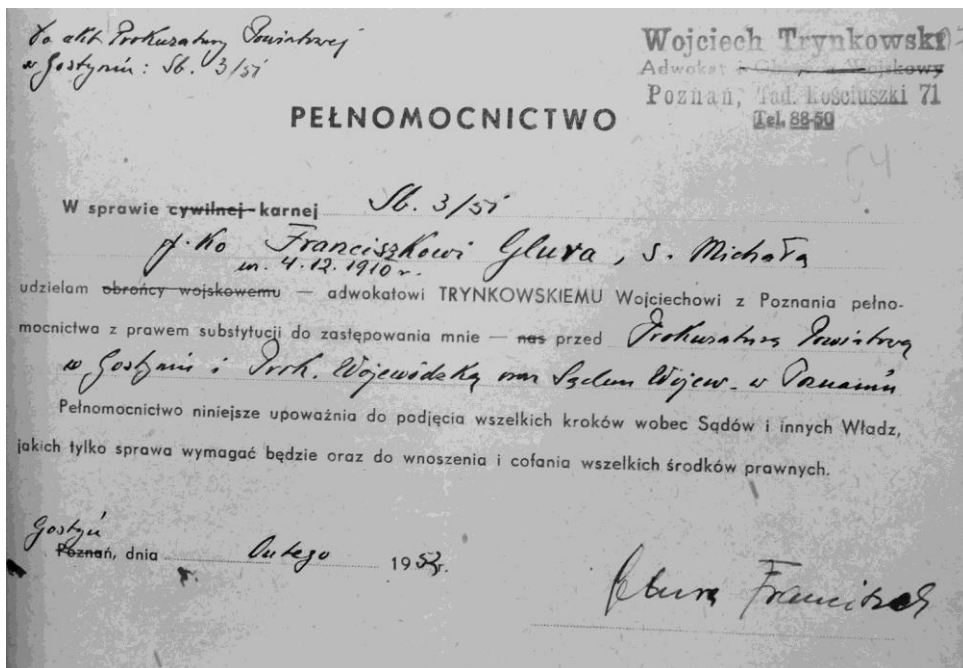 Do akt Prokuratury Powiatowej
w Gostyniu: Sb. 3/51
Wojciech Trynkowski
Adwokat i Obrońca Wojskowy
Poznań, Tad. Kościuszki 71
Tel. 88-50
54
PEŁNOMOCNICTWO
W sprawie cywilnej-karnej Sb. 3/51
p-ko Franciszkowi Glura, s. Michała
ur. 4.12.1910 r.
udzielam obrońcy wojskowemu — adwokatowi TRYNKOWSKIEMU Wojciechowi z Poznania pełno-
mocnictwa z prawem substytucji do zastępowania mnie — nas przed Prokuraturą Powiatową
w Gostyniu i Prok. Wojewódzką oraz Sądem Wojew. w Poznaniu
Pełnomocnictwo niniejsze upoważnia do podjęcia wszelkich kroków wobec Sądów i innych Władz,
jakich tylko sprawa wymagać będzie oraz do wnoszenia i cofania wszelkich środków prawnych.
Gostyń
Poznań, dnia lutego 195 r.
Glura Franciszek